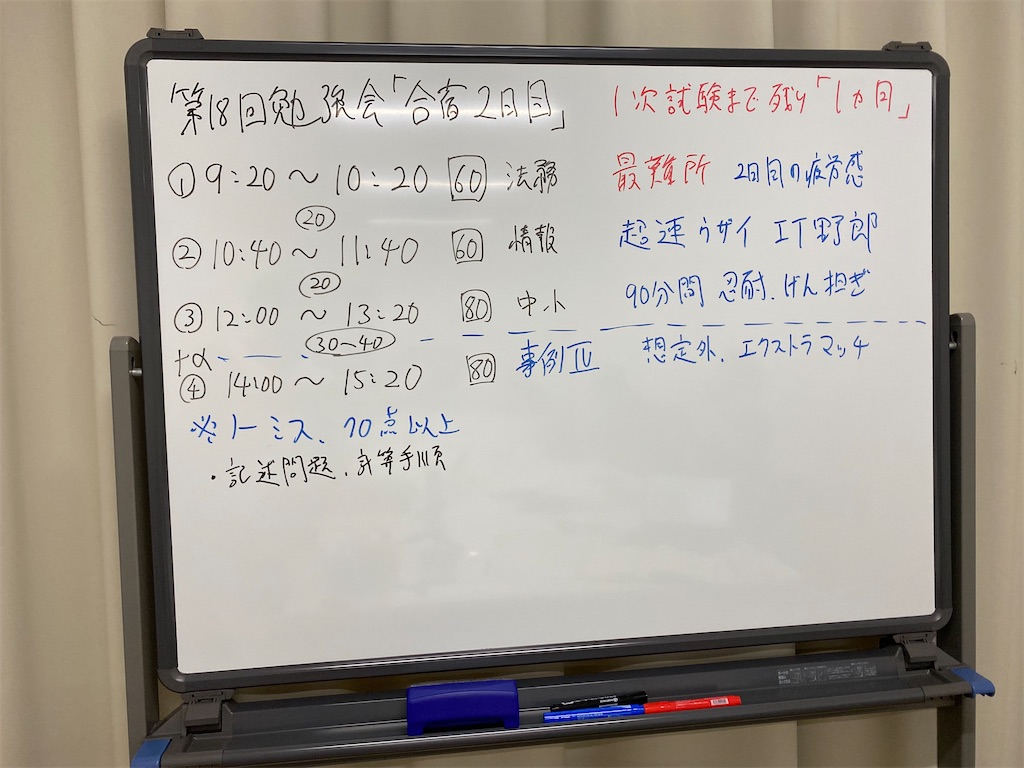 第18回勉強会「合宿2日目」 1次試験まで残り「1カ月」
① 9:20 〜 10:20 60 法務 最難所 2日目の疲労感
20
② 10:40 〜 11:40 60 情報 超速ウザイ IT野郎
20
③ 12:00 〜 13:20 80 中小 90分間 忍耐、げん担ぎ
30〜40
+α
④ 14:00 〜 15:20 80 事例Ⅳ 想定外、エクストラマッチ
※ノーミス、70点以上
・記述問題、計算手順